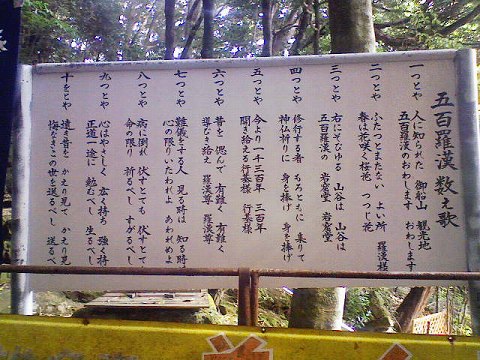 五百羅漢 数え歌
一つとや 人に知られた 御船山 観光地
五百羅漢のおわします おわします
二つとや ふたつとまたない よい所 羅漢様
春は花咲く桜花 つつじ花
三つとや 右にそびゆる 山谷は 山谷は
五百羅漢の 岩窟堂 岩窟堂
四つとや 修行する者 もろともに 集りて
神仏祈りに 身を捧げ 身を捧げ
五つとや 今より一千三百年 三百年
聞き給える行基様 行基様
六つとや 昔を 偲んで 有難く 有難く
導き給え 羅漢尊 羅漢尊
七つとや 難儀をする人 見る時は 知る時
心の限りいたわれよ あわれめよ
八つとや 病に倒れ 伏すとても 伏すとて
命の限り 祈るべし すがるべし
九つとや 心はやさしく 広く持ち 強く持
正道一途に 励むべし 生るべし
十をとや 遠き昔を かえり見て かえり見
悔なきこの世を送るべし 送るべ